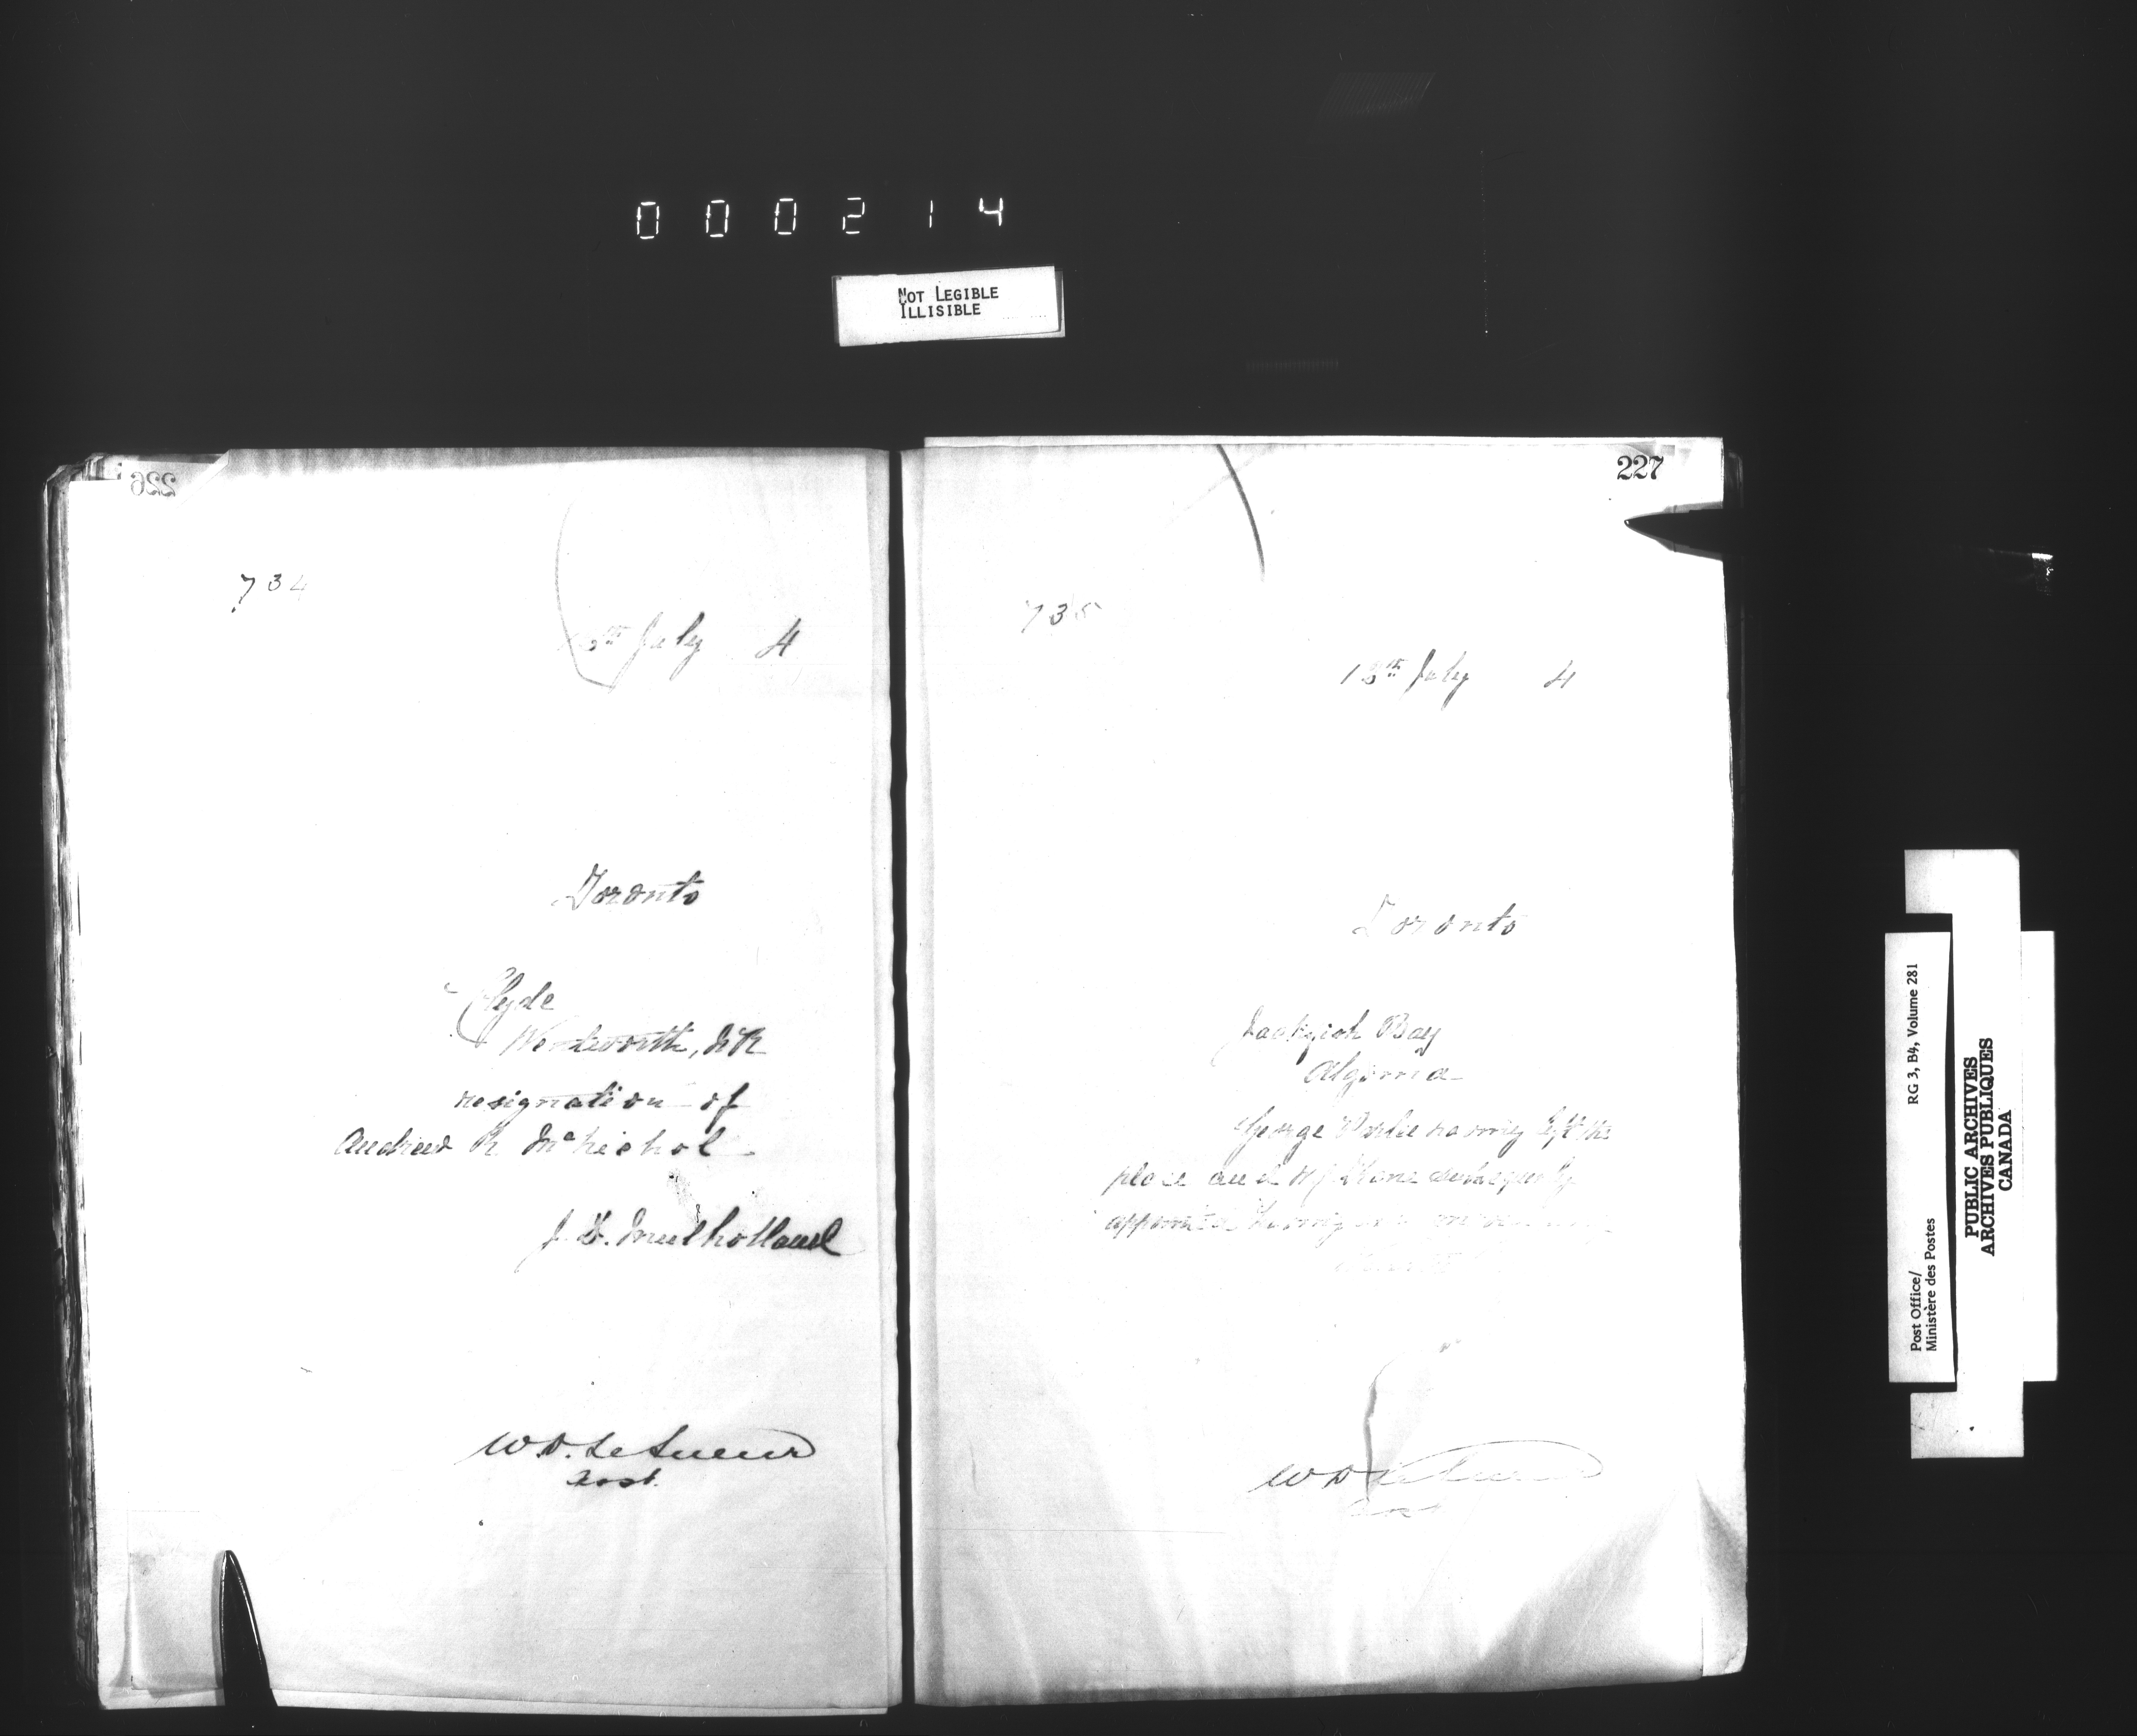 000214
NOT LEGIBLE
ILLISIBLE
226
734
18th July 4
Toronto
Clyde
Wentworth, N R
resignation of
Andrew R. McNichol
J. D. Mulholland
W. D. Le Sueur
Asst.
227
735
18th July 4
Toronto
Jackfish Bay
Algoma
George having left the
place and W J subsequently
appointed having
W D Le Sueur
Asst
Post Office/
Ministère des Postes
RG 3, B4, Volume 281
PUBLIC ARCHIVES
ARCHIVES PUBLIQUES
CANADA